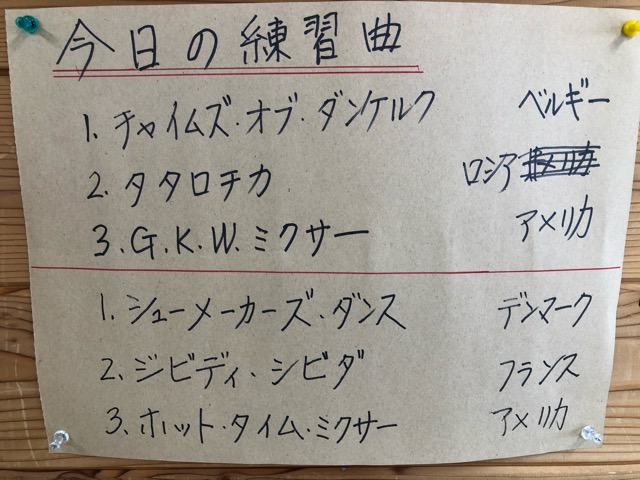 今日の練習曲
1. チャイムズ・オブ・ダンケルク ベルギー
2. タタロチカ ロシア
3. G.K.W.ミクサー アメリカ
1. シューメーカーズ・ダンス デンマーク
2. ジビディ・シビダ フランス
3. ホット・タイム・ミクサー アメリカ